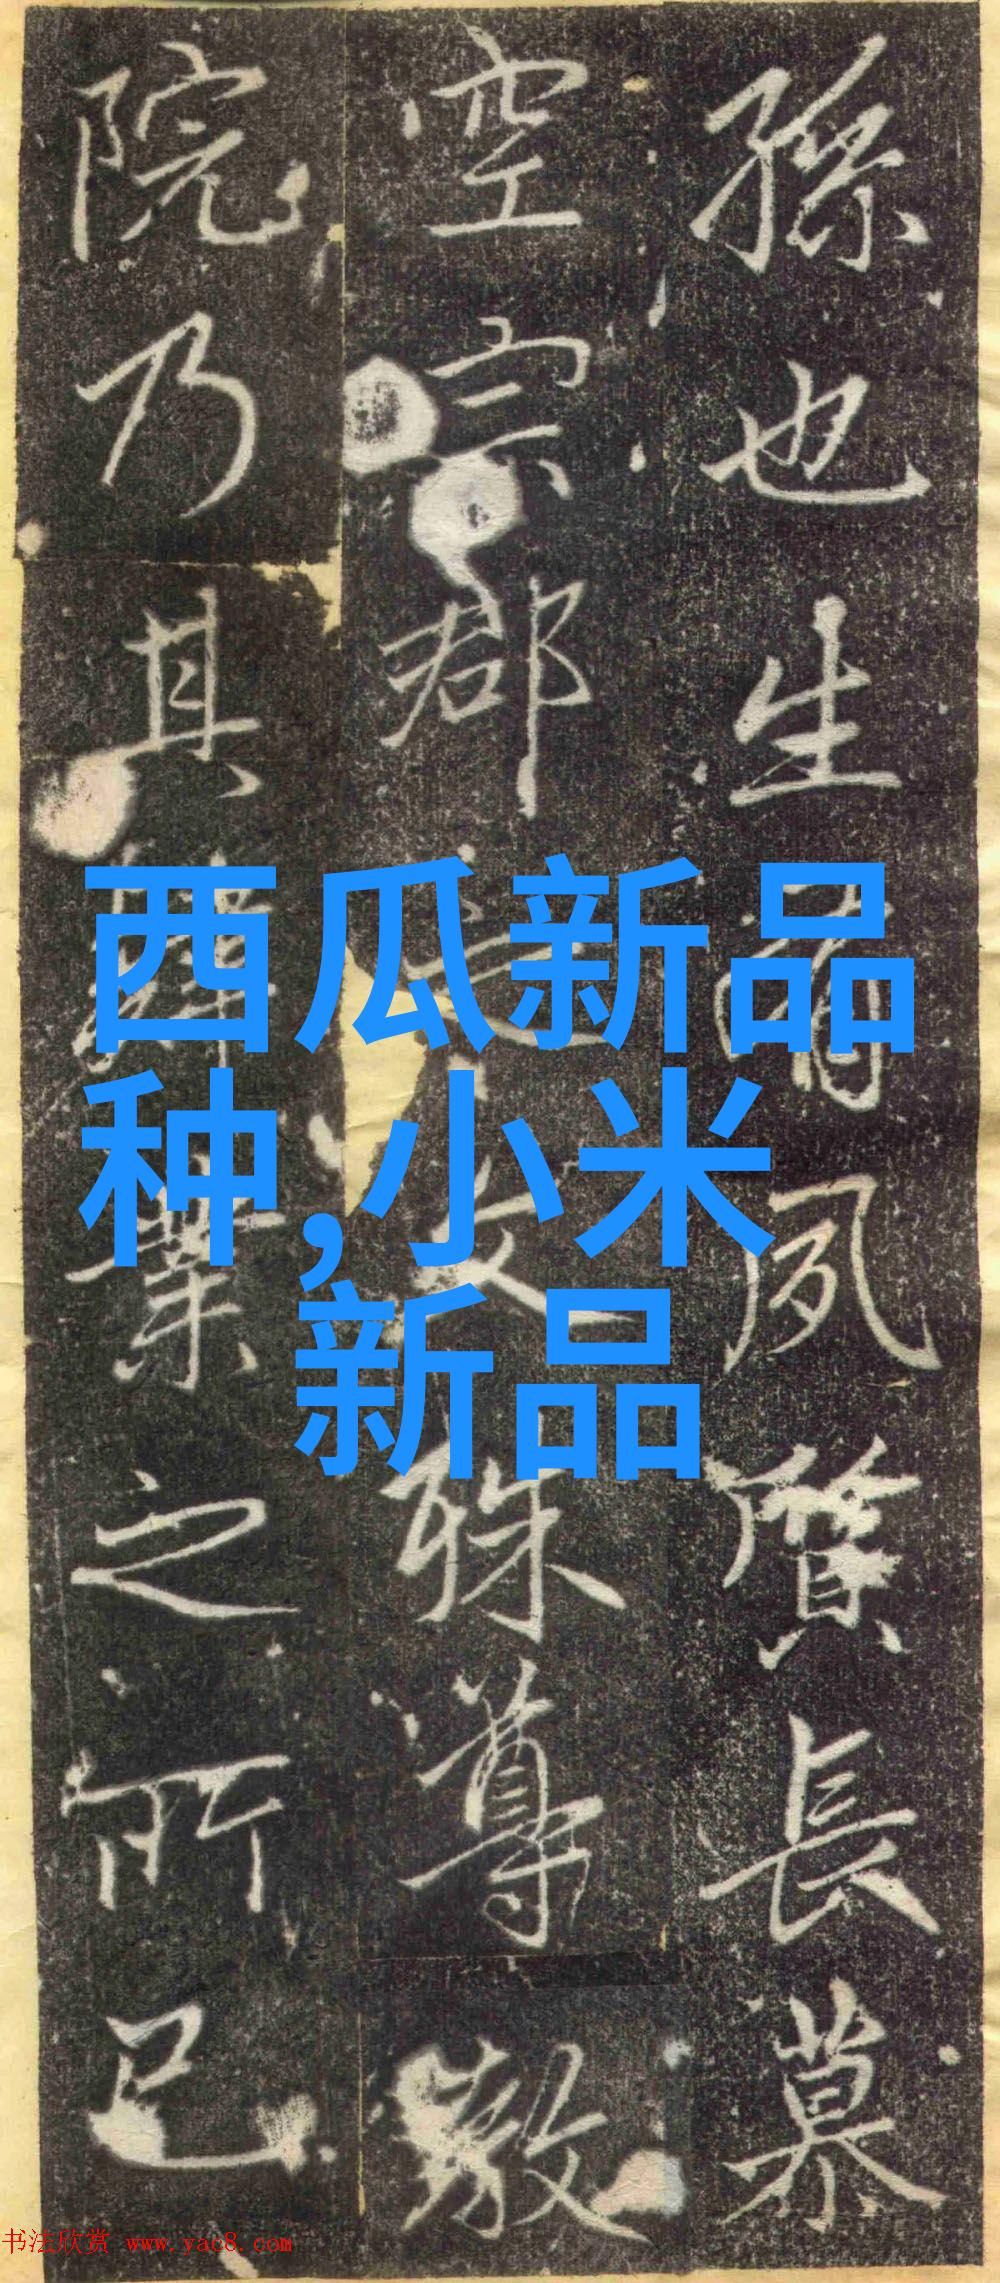 孫也生有夙質長慕
空宗郡之文殊尊
院乃其業之所已
西瓜新品
种,小米
新品
书法欣赏 www.yac8.com